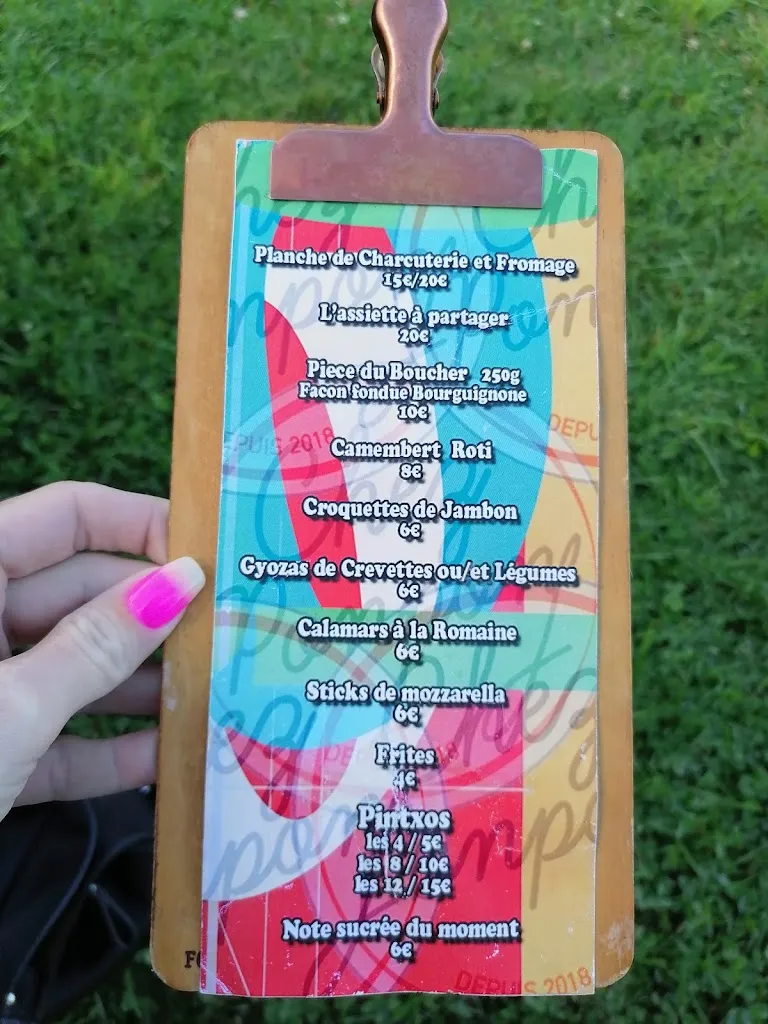 Planche de Charcuterie et Fromage
15€/20€
L'assiette à partager
20€
Piece du Boucher 250g
Facon fondue Bourguignone
10€
DEPUIS 2018
DEPU
Camembert Roti
8€
Croquettes de Jambon
6€
Gyozas de Crevettes ou/et Légumes
6€
Calamars à la Romaine
6€
Sticks de mozzarella
6€
Frites
4€
Pintxos
les 4 / 5€
les 8 / 10€
les 12 / 15€
Note sucrée du moment
6€
DEPUIS 2018